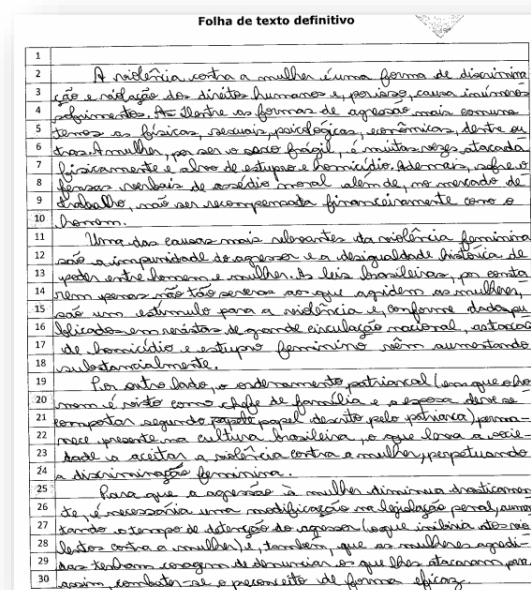 Folha de texto definitivo
1
2 A violência contra a mulher é uma forma de discrimina
3 ção e violação dos direitos humanos e, por isso, causa inúmeros
4 sofrimentos. Dentre as formas de agressão mais comuns
5 temos as físicas, sexuais, psicológicas, econômicas, dentre ou
6 tras. A mulher, por ser o sexo frágil, é muitas vezes atacada
7 fisicamente e alvo de estupro e homicídio. Ademais, sofre o
8 fensas verbais de assédio moral além de, no mercado de
9 trabalho, não ser recompensada financeiramente como o
10 homem.
11 Uma das causas mais relevantes da violência feminina
12 são a impunidade do agressor e a desigualdade histórica de
13 poder entre homem e mulher. As leis brasileiras, por conte
14 rem penas não tão severas aos que agridem as mulheres,
15 são um estímulo para a violência e, conforme dados pu
16 blicados em revistas de grande circulação nacional, as taxas
17 de homicídio e estupro feminino vêm aumentando
18 substancialmente.
19 Por outro lado, o ordenamento patriarcal (em que o ho
20 mem é visto como chefe de família e a esposa deve se
21 comportar segundo papel descrito pelo patriarca) perma-
22 nece presente na cultura brasileira, o que leva a socie
23 dade a aceitar a violência contra a mulher, perpetuando
24 a discriminação feminina.
25 Para que a agressão à mulher diminua drasticamen
26 te, é necessária uma modificação na legislação penal, aumen
27 tando o tempo de detenção do agressor (o que inibiria atos vio
28 lentos contra a mulher) e, também, que as mulheres agredi-
29 das tenham coragem de denunciar os que lhes atacaram para
30 assim, combater-se o preconceito de forma eficaz.